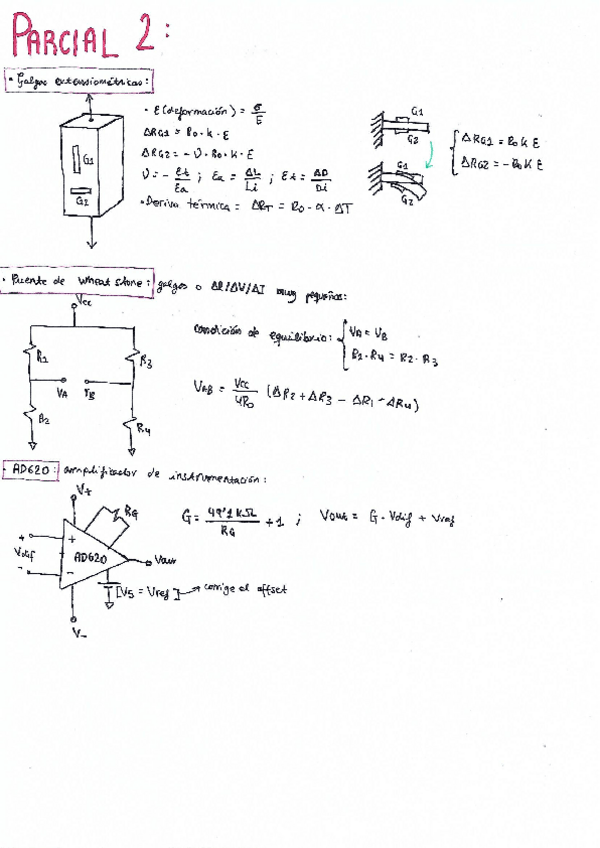 PARCIAL 2:
• Galgas extensiométricas:
• ε(deformación) = σ/E
ΔRG1 = R0 · k · ε
ΔRG2 = - υ · R0 · k · ε
υ = - εt/εa ; εa = ΔL/Li ; εt = ΔD/Di
• Deriva térmica = ΔRT = R0 · α · ΔT
G1
G2
G1
G2
G1
G2
ΔRG1 = R0 k ε
ΔRG2 = - R0 k ε
• Puente de Wheatstone: galgas o ΔR/ΔV/ΔI muy pequeñas:
Vcc
R1
R3
VA
VB
R2
R4
Condición de equilibrio: VA = VB
R1 · R4 = R2 · R3
VAB = Vcc/4R0 (ΔR2 + ΔR3 - ΔR1 - ΔR4)
• AD620: amplificador de instrumentación:
V+
RG
G = 49'4 kΩ/RG + 1 ; Vout = G · Vdif + Vref
+
Vdif
-
+
AD620
-
Vout
[V5 = Vref] → corrige el offset
V-